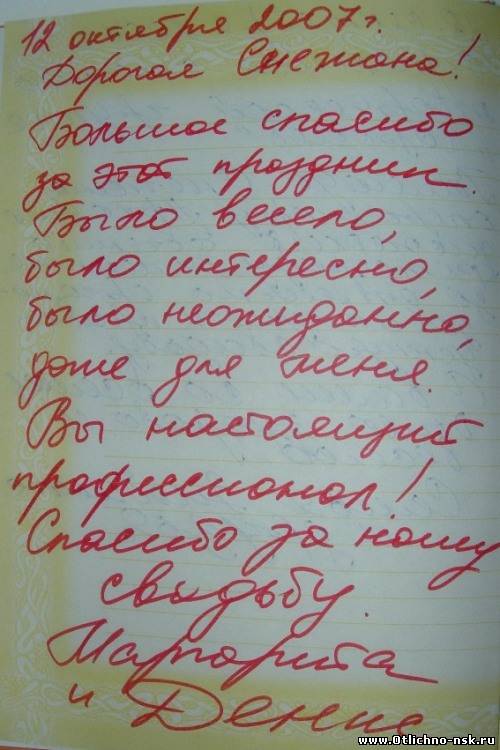 12 октября 2007 г.
Дорогая Снежана!
Большое спасибо
за этот праздник.
Было весело,
было интересно,
было неожиданно,
даже для меня.
Вы настоящий
профессионал!
Спасибо за нашу
свадьбу.
Маргарита
и Денис
www.Otlichno-nsk.ru